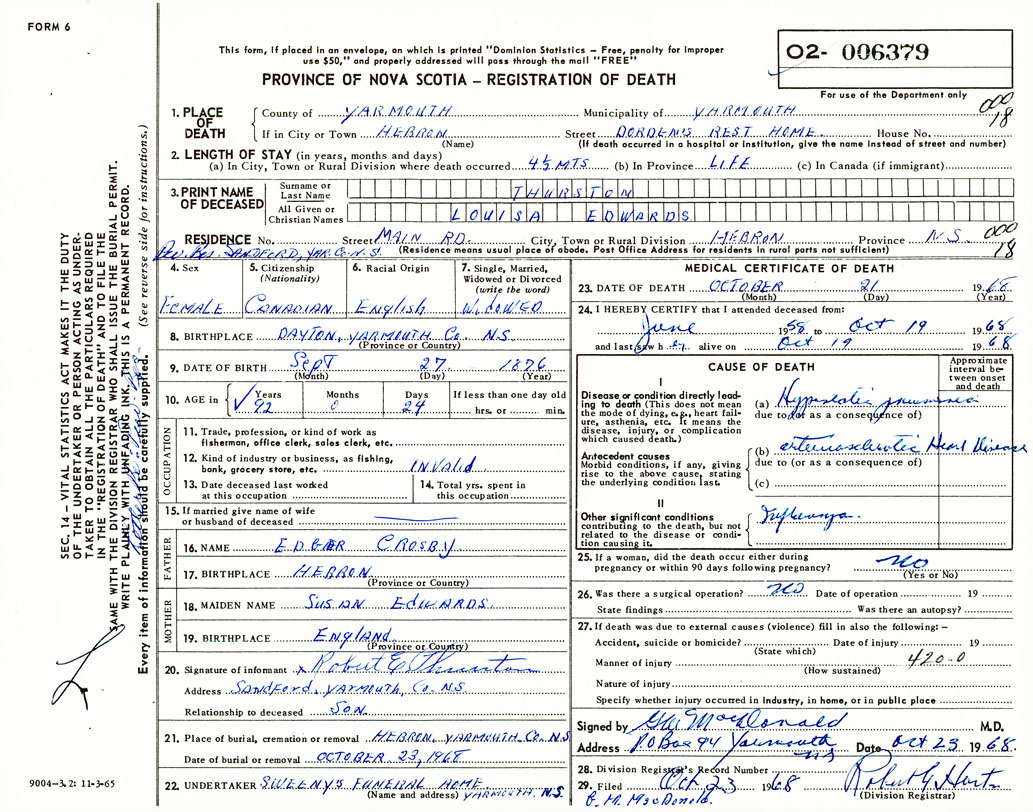 FORM 6
This form, if placed in an envelope, on which is printed "Dominion Statistics – Free, penalty for improper
use $50," and properly addressed will pass through the mail "FREE"
PROVINCE OF NOVA SCOTIA – REGISTRATION OF DEATH
O2- 006379
For use of the Department only
000
18
1. PLACE OF DEATH
County of YARMOUTH Municipality of YARMOUTH
If in City or Town HEBRON Street DORDEN'S REST HOME House No.
(Name) (If death occurred in a hospital or institution, give the name instead of street and number)
2. LENGTH OF STAY (in years, months and days)
(a) In City, Town or Rural Division where death occurred 4½ MTS. (b) In Province LIFE (c) In Canada (if immigrant)
3. PRINT NAME OF DECEASED
Surname or Last Name THURSTON
All Given or Christian Names LOUISA EDWARDS
RESIDENCE No. Street MAIN RD. City, Town or Rural Division HEBRON Province N.S. 000
18
(Residence means usual place of abode. Post Office Address for residents in rural parts not sufficient)
SANDFORD, YAR. CO. N.S.
4. Sex 5. Citizenship (Nationality) 6. Racial Origin 7. Single, Married, Widowed or Divorced (write the word)
FEMALE CANADIAN English WIDOWED
8. BIRTHPLACE DAYTON, YARMOUTH Co. N.S.
(Province or Country)
9. DATE OF BIRTH Sept 27 1876
(Month) (Day) (Year)
10. AGE in Years Months Days If less than one day old
92 0 24 hrs. or min.
OCCUPATION
11. Trade, profession, or kind of work as
fisherman, office clerk, sales clerk, etc.
12. Kind of industry or business, as fishing,
bank, grocery store, etc. INVALID
13. Date deceased last worked
at this occupation
14. Total yrs. spent in
this occupation
15. If married give name of wife
or husband of deceased
FATHER
16. NAME EDGAR CROSBY
17. BIRTHPLACE HEBRON
(Province or Country)
MOTHER
18. MAIDEN NAME SUSAN EDWARDS
19. BIRTHPLACE ENGLAND
(Province or Country)
20. Signature of informant x Robert E Thurston
Address SANDFORD, YARMOUTH, Co. N.S.
Relationship to deceased SON.
21. Place of burial, cremation or removal HEBRON, YARMOUTH Co. N.S
Date of burial or removal OCTOBER 23, 1968
22. UNDERTAKER SWEENY'S FUNERAL HOME
(Name and address) YARMOUTH, N.S.
MEDICAL CERTIFICATE OF DEATH
23. DATE OF DEATH OCTOBER 21 1968
(Month) (Day) (Year)
24. I HEREBY CERTIFY that I attended deceased from:
June 1958 to Oct 19 1968
and last saw h er alive on Oct 19 1968
CAUSE OF DEATH
Approximate interval between onset and death
I
Disease or condition directly leading to death (This does not mean the mode of dying, e.g., heart failure, asthenia, etc. It means the disease, injury, or complication which caused death.)
(a) Hypostatic pneumonia
due to (or as a consequence of)
Antecedent causes
Morbid conditions, if any, giving rise to the above cause, stating the underlying condition last.
(b) arteriosclerotic Heart Disease
due to (or as a consequence of)
(c)
II
Other significant conditions
contributing to the death, but not related to the disease or condition causing it.
Influenza.
25. If a woman, did the death occur either during
pregnancy or within 90 days following pregnancy? No
(Yes or No)
26. Was there a surgical operation? No Date of operation 19
State findings Was there an autopsy?
27. If death was due to external causes (violence) fill in also the following: –
Accident, suicide or homicide? Date of injury 19
(State which)
Manner of injury 420.0
(How sustained)
Nature of injury
Specify whether injury occurred in industry, in home, or in public place
Signed by G.M. MacDonald M.D.
Address P.O Box 94 Yarmouth N.S Date Oct 23 1968.
28. Division Registrar's Record Number
29. Filed Oct 23 1968 Robert G. Hurt
(Division Registrar)
C. M. MacDonald.
SEC. 14 – VITAL STATISTICS ACT MAKES IT THE DUTY
OF THE UNDERTAKER OR PERSON ACTING AS UNDER-
TAKER TO OBTAIN ALL THE PARTICULARS REQUIRED
IN THE "REGISTRATION OF DEATH" AND TO FILE THE
SAME WITH THE DIVISION REGISTRAR WHO SHALL ISSUE THE BURIAL PERMIT.
WRITE PLAINLY WITH UNFADING INK. THIS IS A PERMANENT RECORD.
Every item of information should be carefully supplied. (See reverse side for instructions.)
9004-3.2: 11-3-65